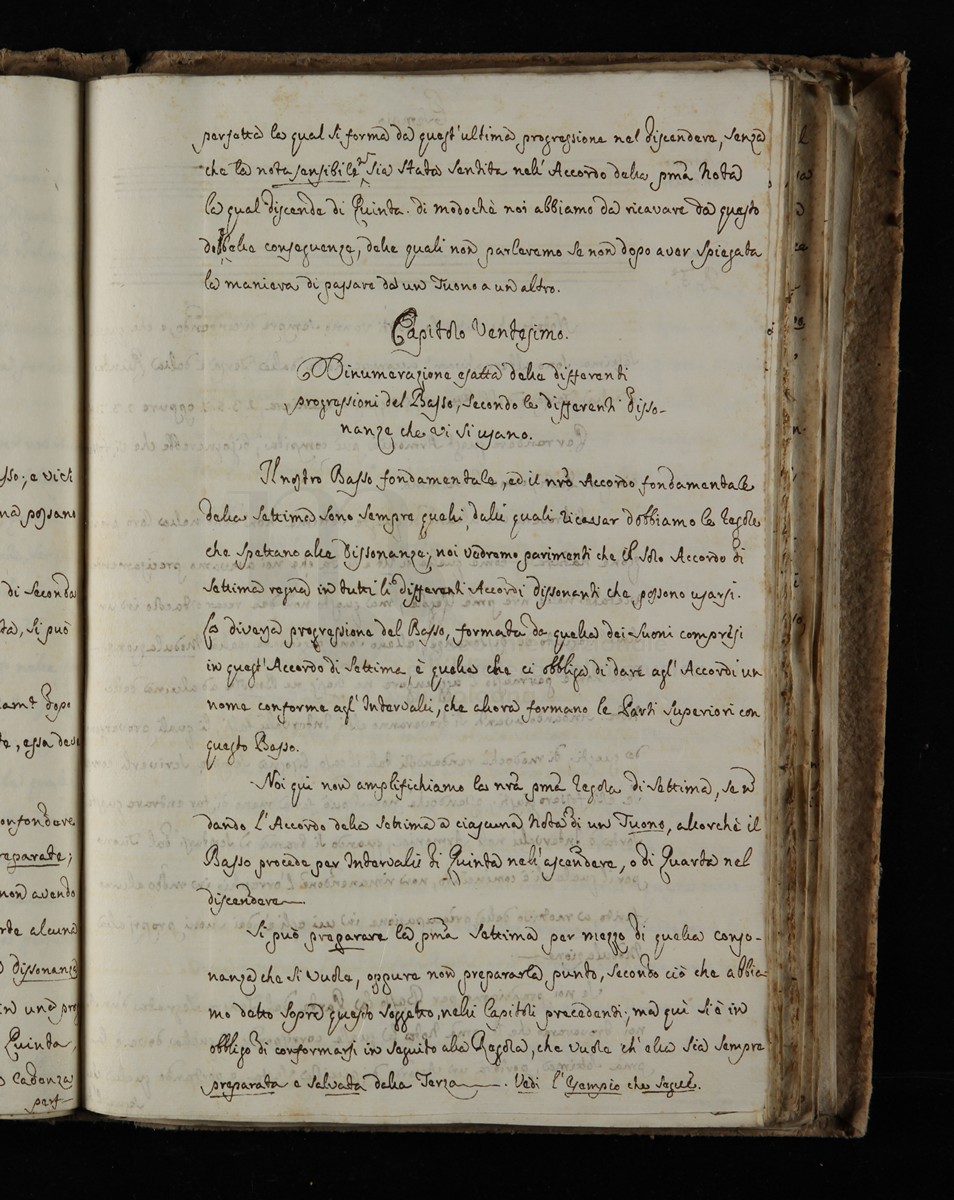 sso; e vici
na possano
di seconda
ta, si può
am.te dopo
te, essa deve
confondere
reparate;
non avendo
rte alcuna
dissonanza
in una pro
Quinta,
Cadenza
perf
perfetta la qual si forma da quest'ultima progressione nel discendere, senza
che la nota sensibile sia stata sentita nell'Accordo della pma Nota
la qual discende di Quinta. di modochè noi abbiamo da ricavare da questo
delle conseguenze, delle quali non parleremo se non dopo aver spiegata
la maniera di passare da un Tuono a un altro.
Capitolo Ventesimo.
Dinumerazione esatta delle differenti
progressioni del Basso, secondo le differenti disso-
nanze che vi si usano.
Il nostro Basso fondamentale, ed il nro Accordo fondamentale
della settima sono sempre quelli, dalli quali ricavar dobbiamo le regole
che spettano alle dissonanze; noi vedremo parimenti che il solo Accordo di
settima regna in tutti li differenti Accordi dissonanti che possono usarsi.
La diversa progressione del Basso, formata da quella dei suoni compresi
in quest'Accordo di settima, è quella che ci obbliga di dare agl'Accordi un
nome conforme agl'Intervalli, che allora formano le Parti superiori con
questo Basso.
Noi quì non amplifichiamo la nra pma regola di settima, se ñ
dando l'Accordo della settima a ciascuna Nota di un Tuono, allorchè il
Basso procede per Intervalli di Quinta nell'ascendere, o di Quarta nel
discendere
Si può preparare la pma settima per mezzo di quella conso-
nanza che si vuole, oppure non prepararla punto, secondo ciò che abbia-
mo detto sopra questo soggetto, nelli Capitoli precedenti; ma quì si è in
obbligo di conformarsi in seguito alla Regola, che vuole ch'ella sia sempre
preparata e salvata dalla Terza. Vedi l'Esempio che segue.